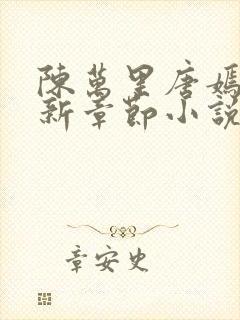 陳萬里唐嫣
新章節小說
章安史